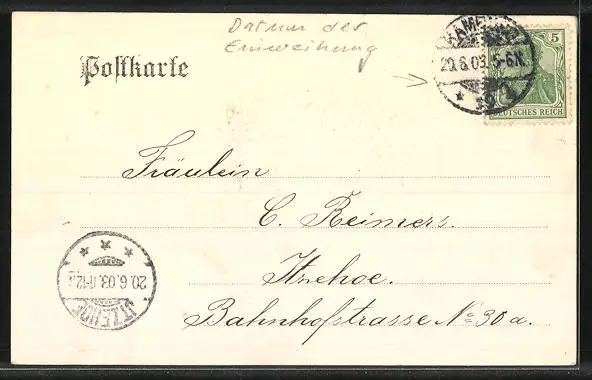 Datum der
Einweihung
Postkarte
20.6.03. 5-6N.
5
DEUTSCHES REICH
Fräulein
C. Reimers.
Itzehoe.
Bahnhofstrasse No 30 a.
20.6.03. 11-12
ITZEHOE